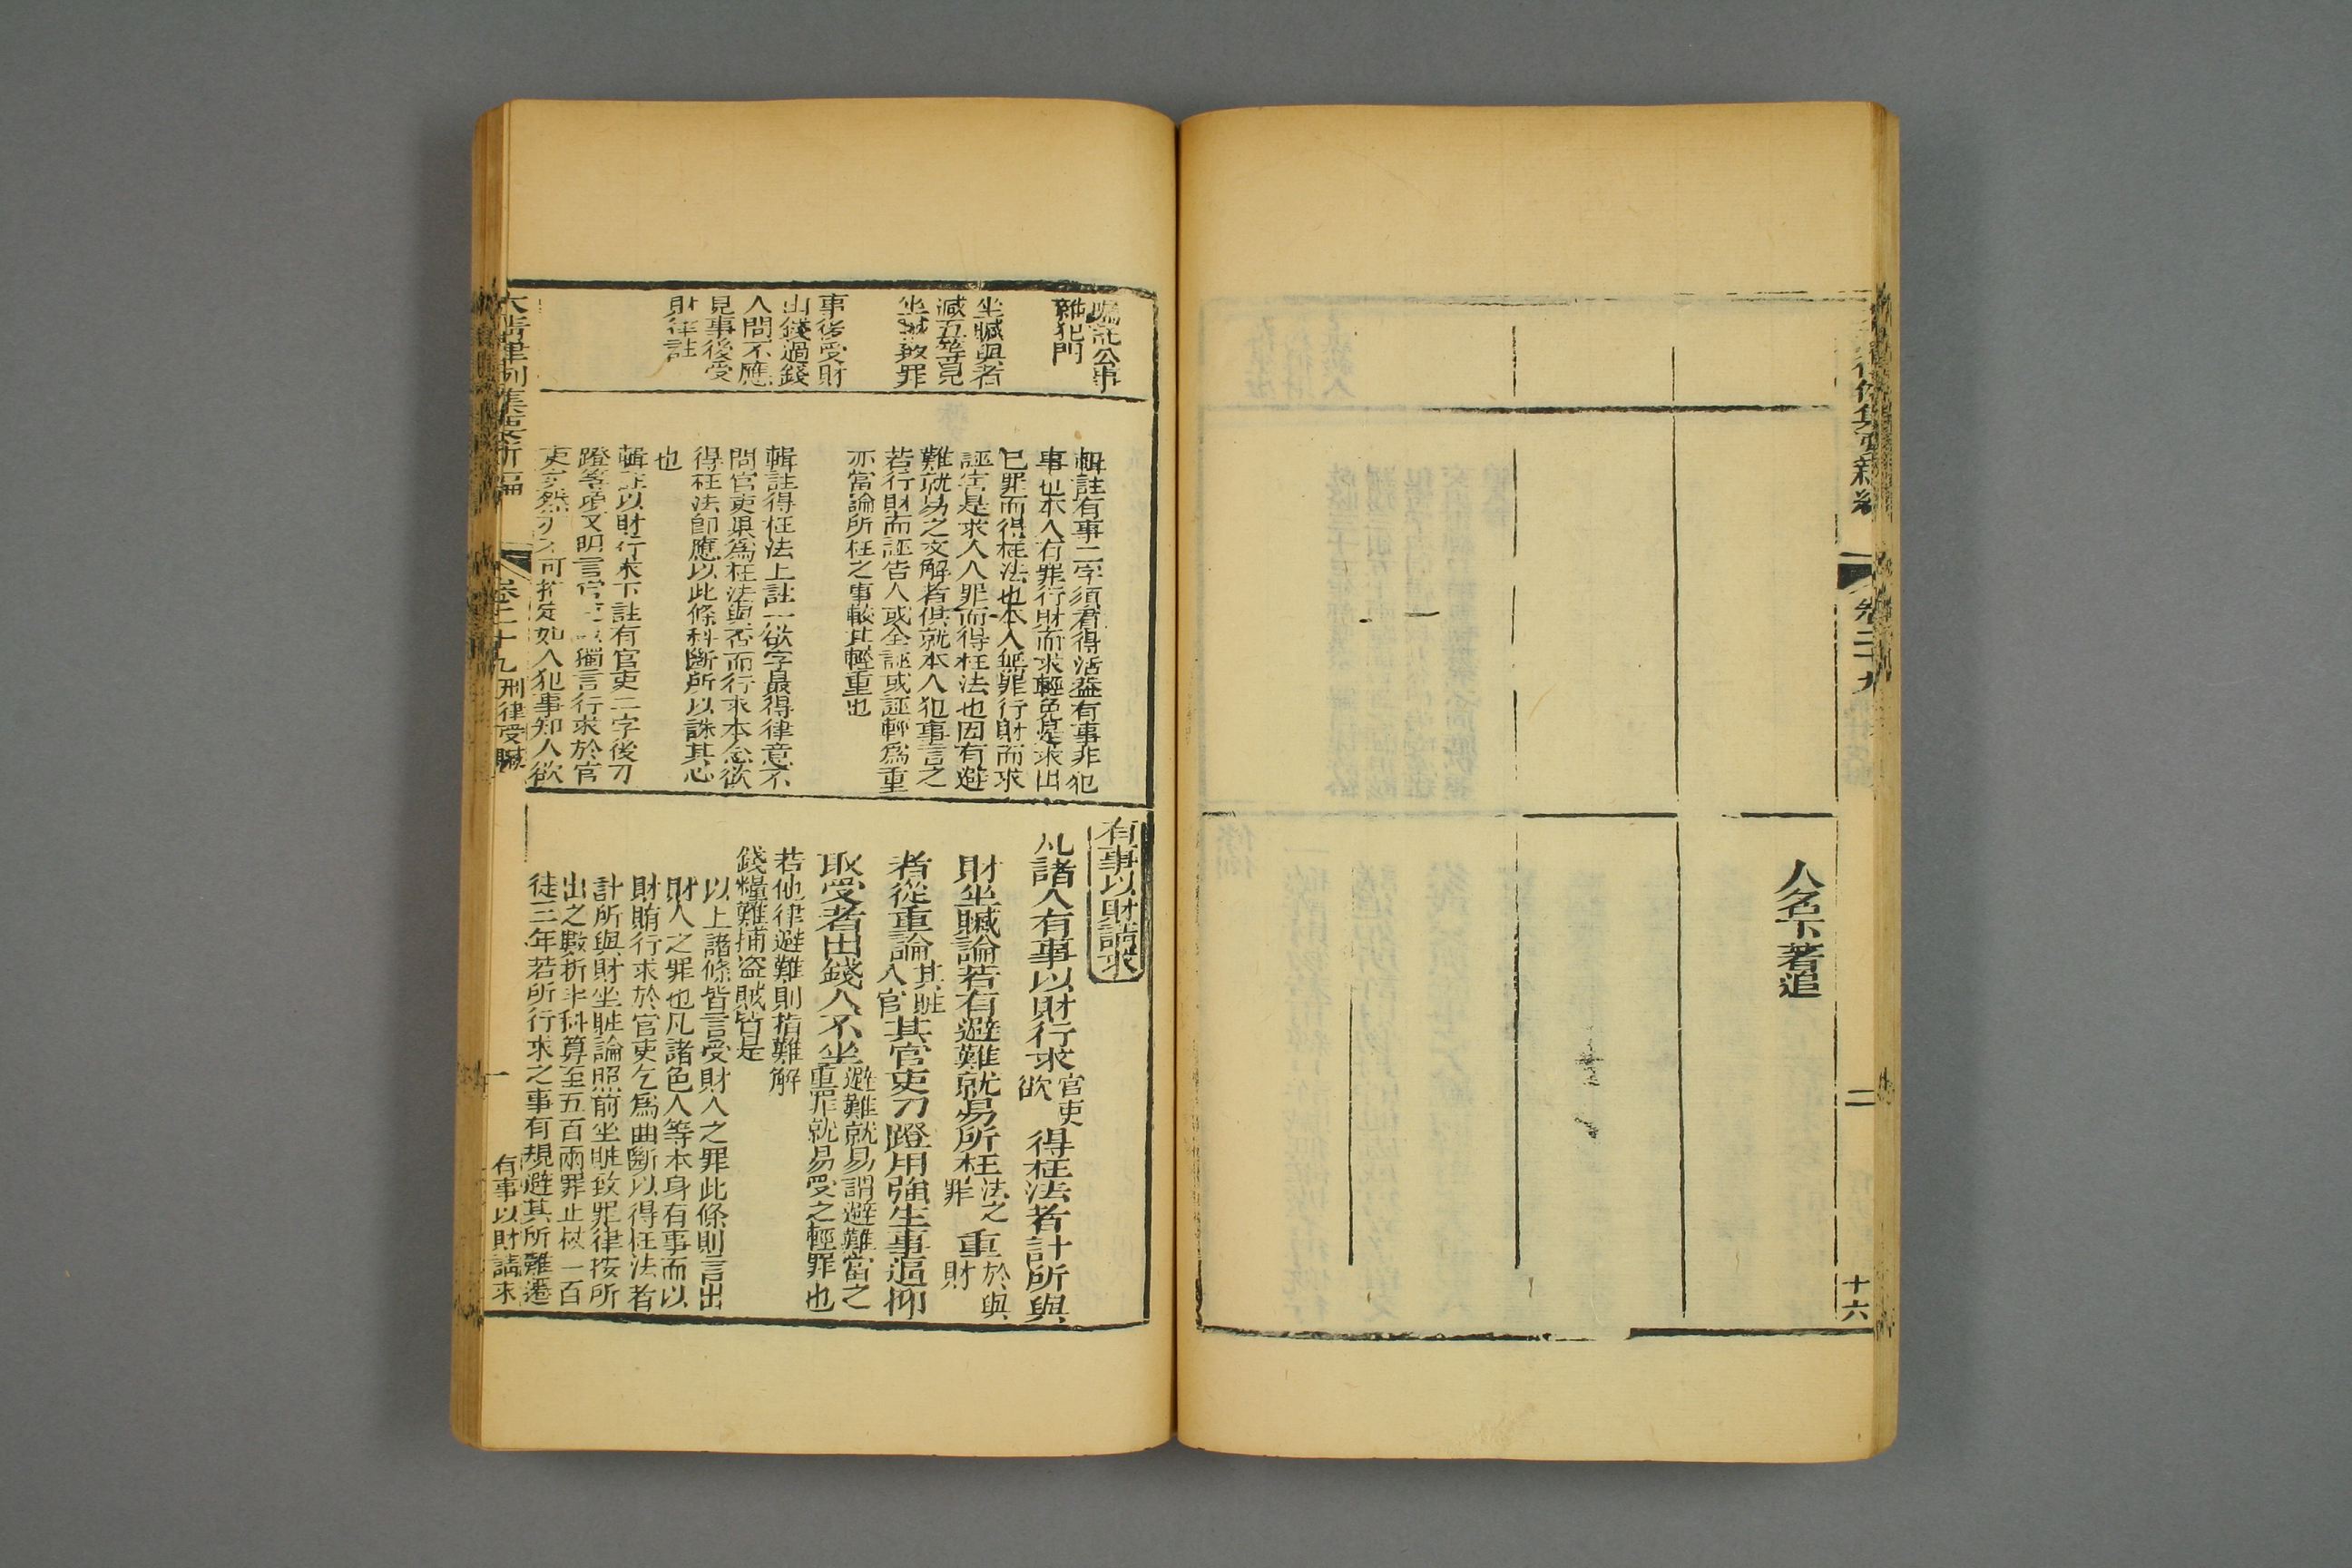 人名下著追
卷二十九
二
十六
囑託公事
雜犯門
坐贓與者
減五等見
坐贓致罪
事後受財
出錢過錢
人問不應
見事後受
財律註
輯註有事二字須看得活蓋有事非犯
事也本人有罪行財而求輕免是求出
已罪而得枉法也本人無罪行財而求
誣害是求入人罪而得枉法也因有避
難就易之文解者俱就本人犯事言之
若行財而誣告人或全誣或誣輕爲重
亦當論所枉之事較其輕重也
輯註得枉法上註一欲字最得律意不
問官吏果爲枉法與否而行求本念欲
得枉法卽應以此條科斷所以誅其心
也
輯註以財行求下註有官吏二字後刁
蹬等項又明言官吏獨言行求於官
吏亦然不可拘定如人犯事知人欲
有事以財請求
凡諸人有事以財行求官吏欲得枉法者計所與
財坐贓論若有避難就易所枉法之罪重於與財
者從重論其贓入官其官吏刁蹬用強生事逼抑
取受者出錢人不坐避難就易謂避難當之重罪就易受之輕罪也
若他律避難則指難解
錢糧難捕盗賊皆是
以上諸條皆言受財人之罪此條則言出
財人之罪也凡諸色人等本身有事而以
財賄行求於官吏乞爲曲斷以得枉法者
計所與財坐贓論照前坐贓致罪律按所
出之數折半科算至五百兩罪止杖一百
徒三年若所行求之事有規避其所難遷
大清律例集要新編
卷二十九刑律受贓
一
有事以財請求